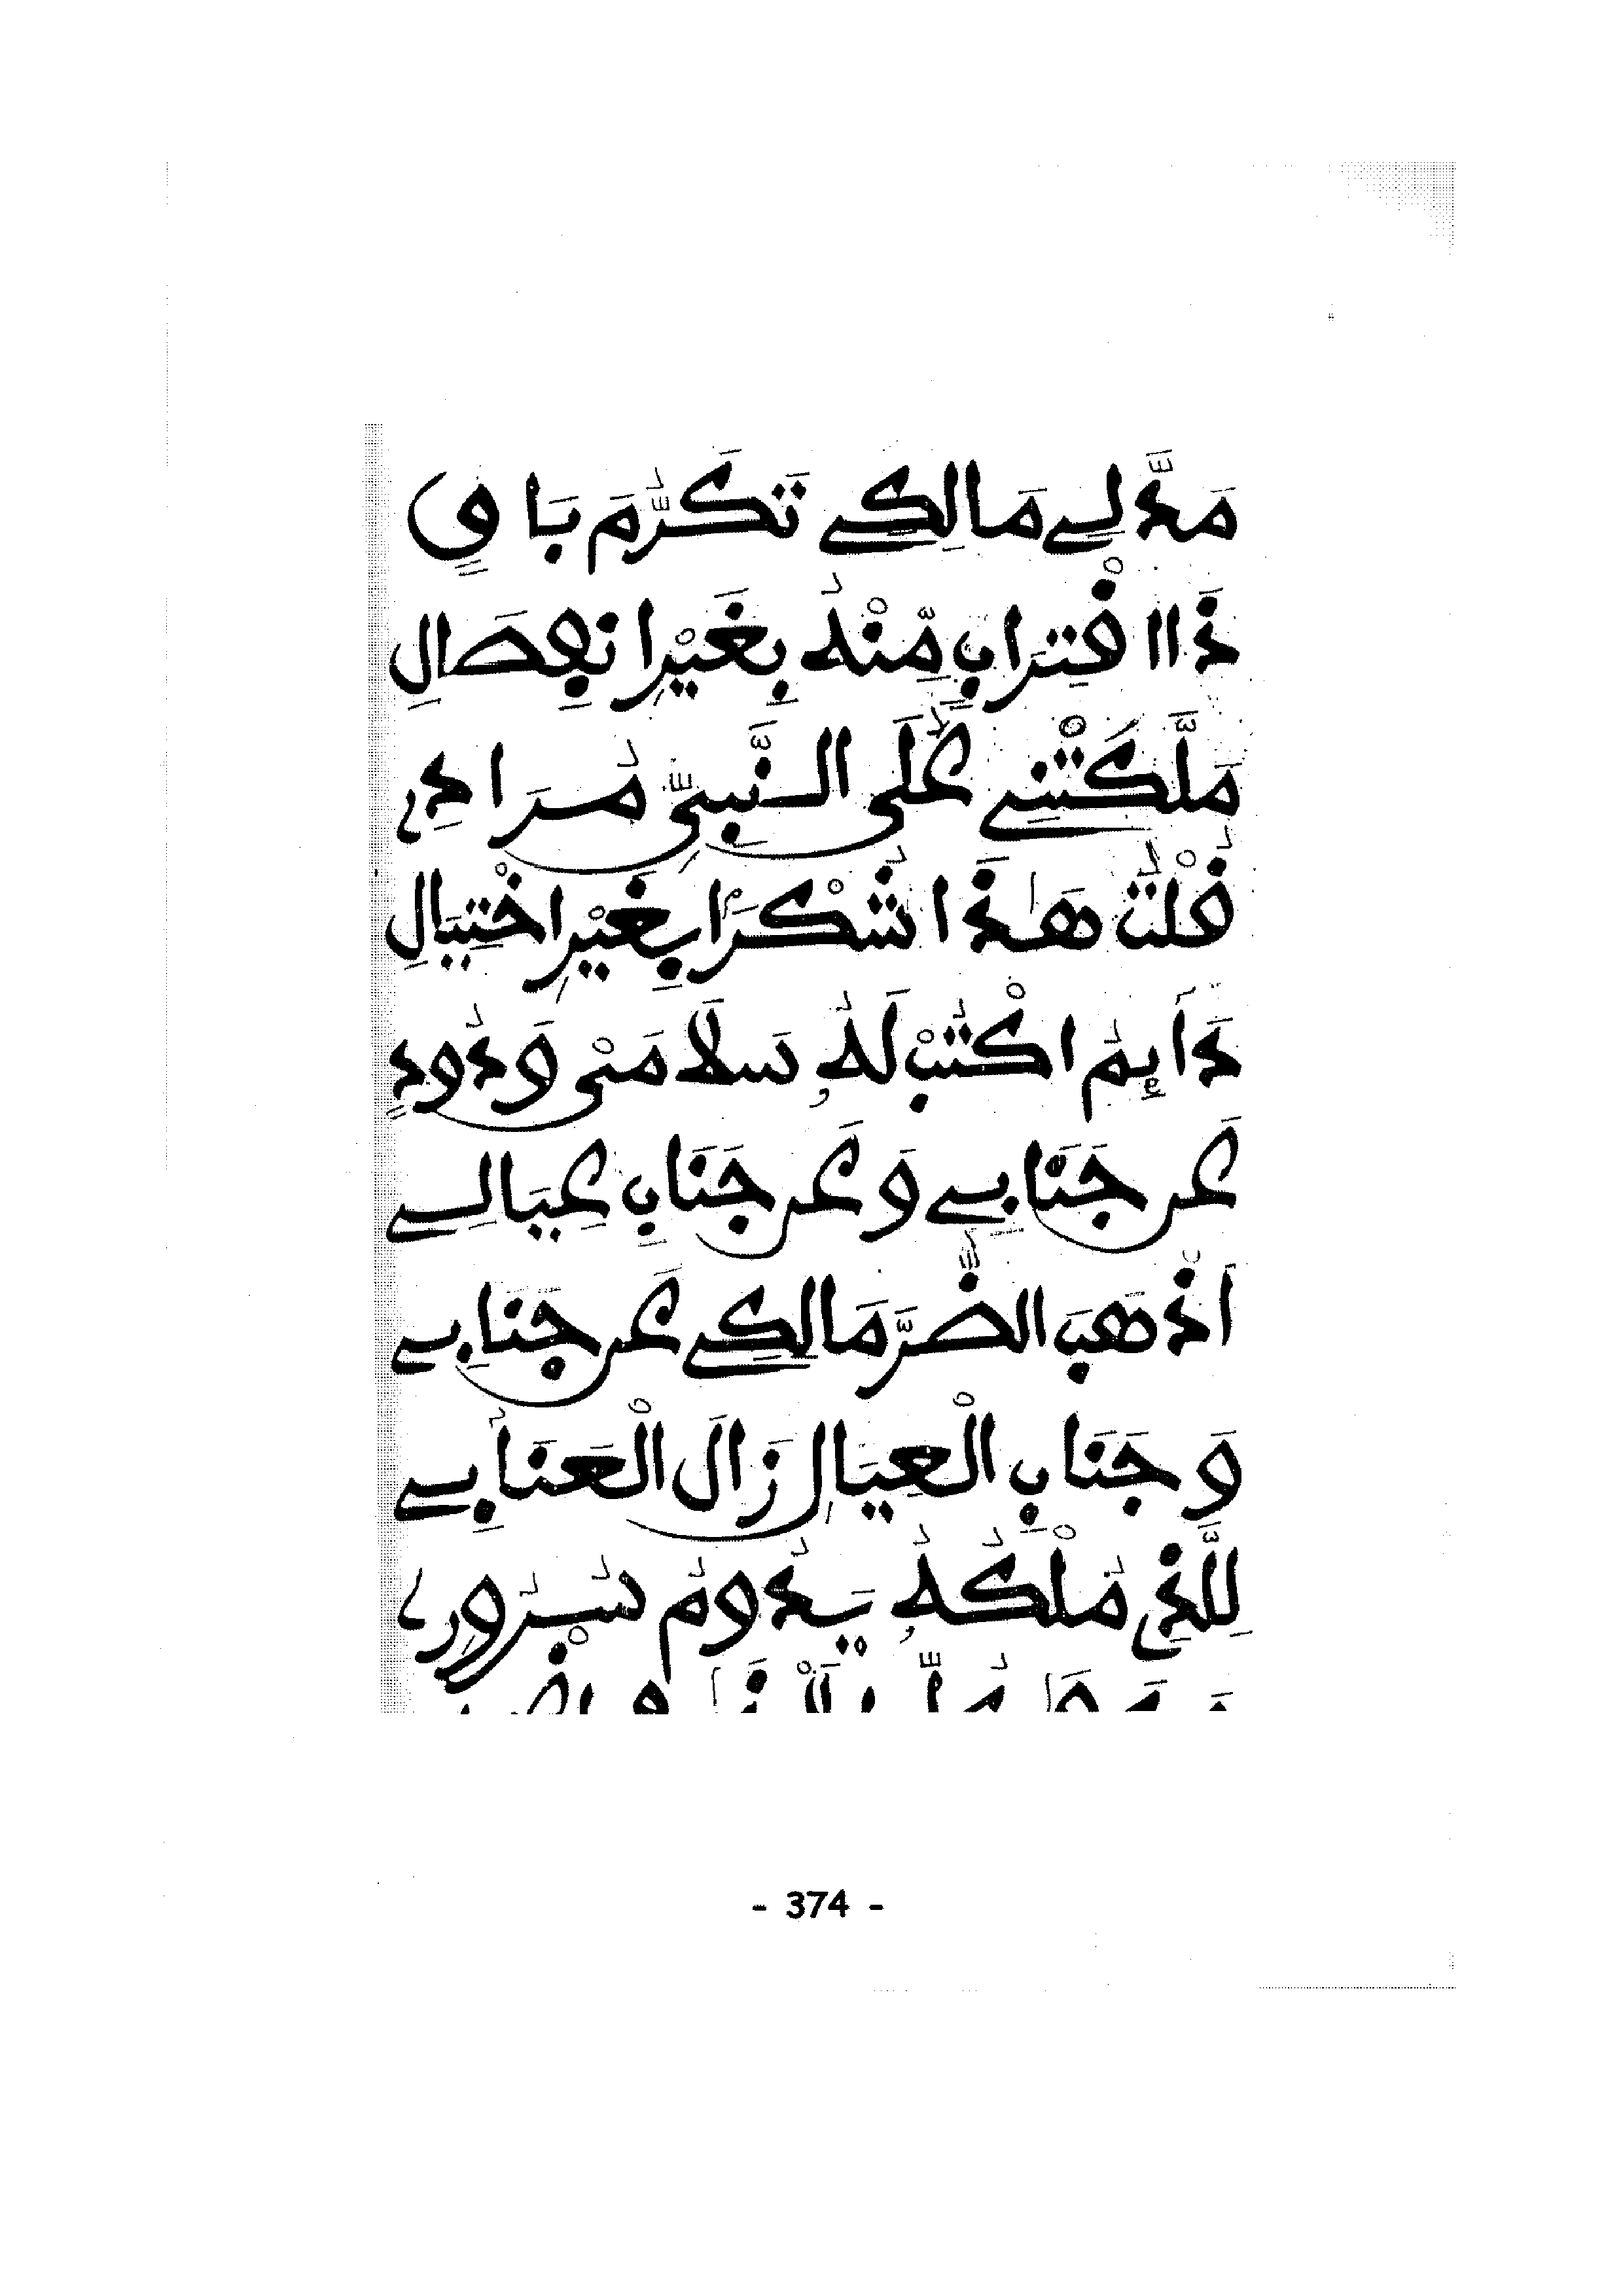 مَدَّ لِے مَالِكِے تَكَرُّمَ بَاقٍ
ذَا اقْتِرَابٍ مِّنْهُ بِغَيْرِ انْفِصَالِ
مَلَّكَتْنِے عَلَى النَّبِيِّ مُرَادِي
قُلْتُ هَٰذَا شُكْرًا بِغَيْرِ اخْتِيَالِ
دَآئِمُ اكْتُبْ لَهُ سَلَامَىْ وَدُودٍ
عَن جَنَابِے وَعَن جَنَابِ عِيَالِے
اَذْهَبَ الضُّرَّ مَالِكِے عَن جَنَابِے
وَجَنَابِ الْعِيَالِ زَالَ الْعَنَا بِے
لِلَّذِي مُلْكُهُ يَدُومُ سُرُورِي
- 374 -